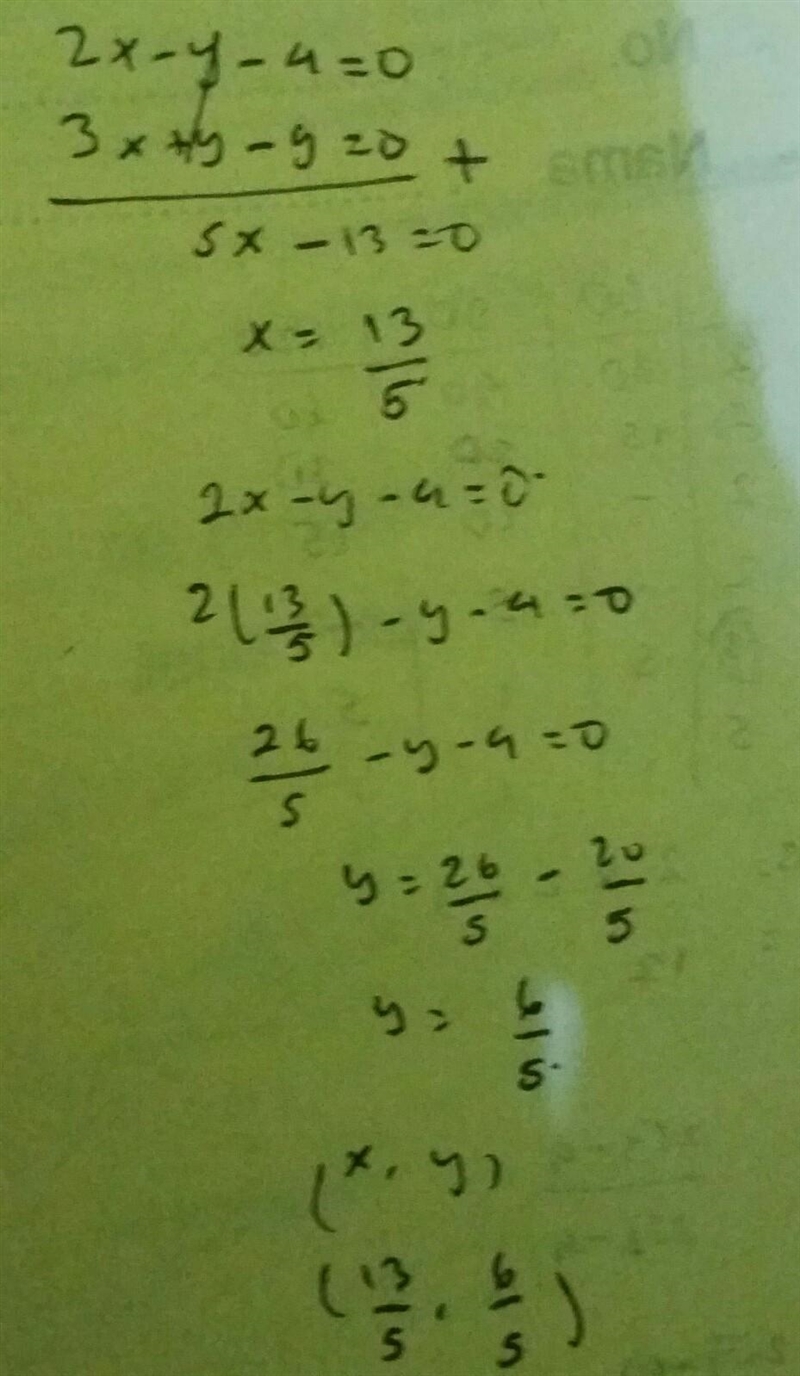 2x - y - 4 = 0
3x + y - 9 = 0 +
5x - 13 = 0
x = 13/5
2x - y - 4 = 0
2(13/5) - y - 4 = 0
26/5 - y - 4 = 0
y = 26/5 - 20/5
y = 6/5
(x, y)
(13/5, 6/5)